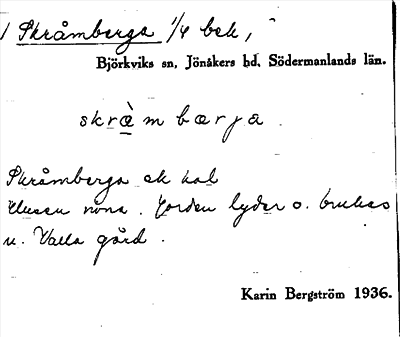 1 Skråmberga 1/4 bek,
Björkviks sn, Jönåkers hd, Södermanlands län.
skràmbærja.
Skråmberga ek kal
Husen rivna. Jorden lyder o. brukas
u. Valla gård.
Karin Bergström 1936.